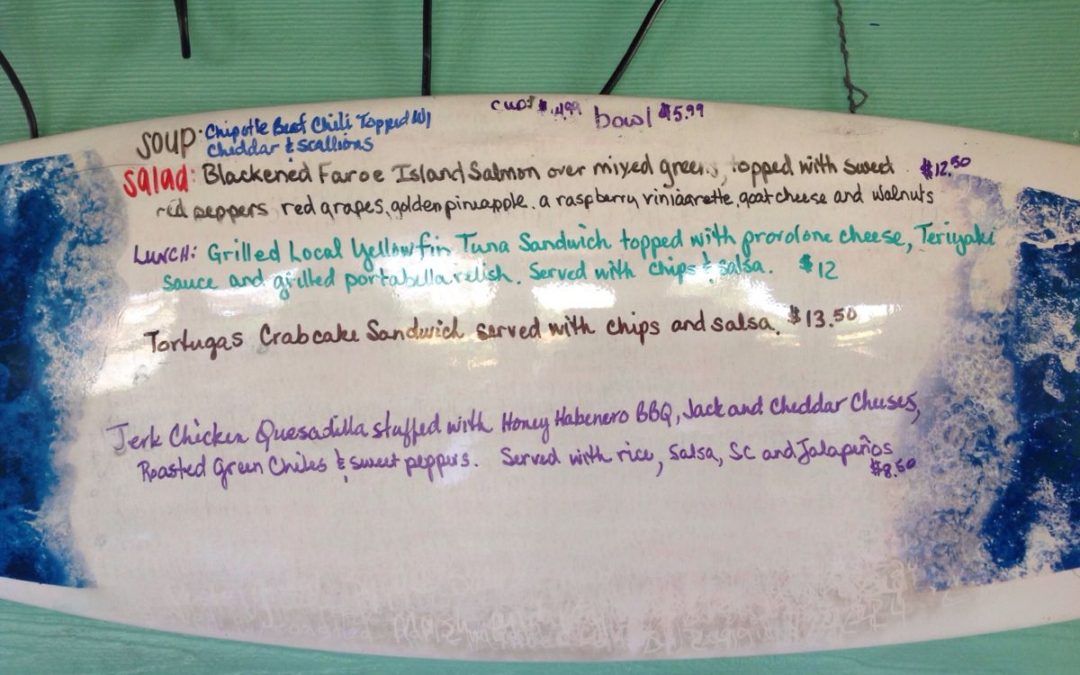 cup $4.99 bowl $5.99
Soup · Chipotle Beef Chili Topped W/
Cheddar & Scallions
Salad: Blackened Faroe Island Salmon over mixed greens, topped with sweet $12.50
red peppers, red grapes, golden pineapple, a raspberry viniagrette, goat cheese and walnuts
Lunch: Grilled Local Yellowfin Tuna Sandwich topped with provolone cheese, Teriyaki
sauce and grilled portabella relish. Served with chips & salsa. $12
Tortugas Crabcake Sandwich served with chips and salsa. $13.50
Jerk Chicken Quesadilla stuffed with Honey Habenero BBQ, Jack and Cheddar Cheeses,
Roasted Green Chiles & sweet peppers. Served with rice, salsa, SC and Jalapeños
$8.50